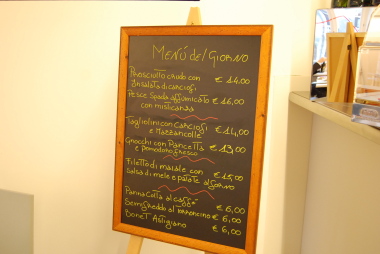 MENÙ del GIORNO
Prosciutto crudo con € 14,00
insalata di carciofi
Pesce Spada affumicato € 16,00
con misticanza
Tagliolini con CARCIOFI € 14,00
e Mazzancolle
Gnocchi con Pancetta € 13,00
e pomodoro fresco
Filetto di maiale con € 15,00
salsa di mele e patate al forno
Panna Cotta al caffè € 6,00
Semifreddo al torroncino € 6,00
Bonet Astigiano € 6,00